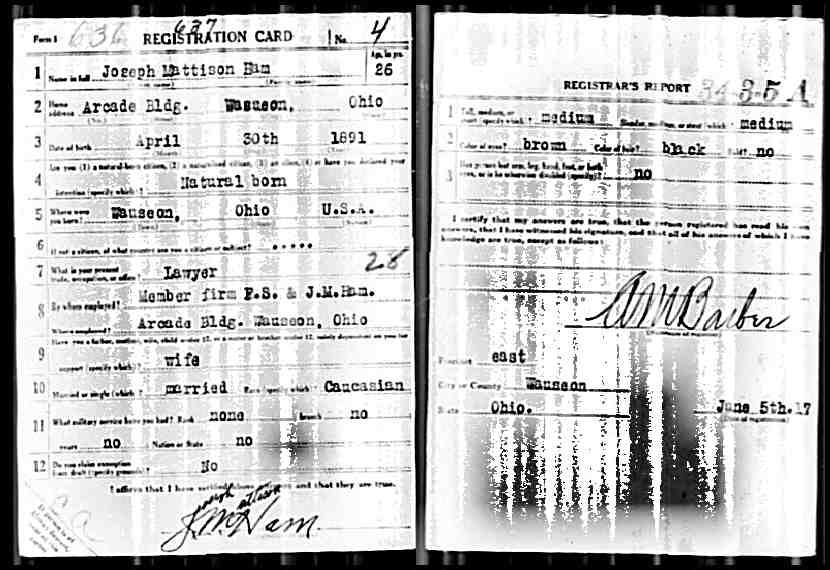 Form 1 636 637 REGISTRATION CARD No. 4
1 Name in full Joseph Mattison Ham Age, in yrs. 26
2 Home address Arcade Bldg. Wauseon, Ohio
3 Date of birth April 30th 1891
Are you (1) a natural-born citizen, (2) a naturalized citizen, (3) an alien, (4) or have you declared your
4 intention (specify which)? Natural born
5 Where were you born? Wauseon, Ohio U.S.A.
6 If not a citizen, of what country are you a citizen or subject?
7 What is your present trade, occupation, or office? Lawyer 28
8 By whom employed? Member firm F.S. & J.M.Ham.
Where employed? Arcade Bldg. Wauseon, Ohio
9 Have you a father, mother, wife, child under 12, or a sister or brother under 12, solely dependent on you for
support (specify which)? wife
10 Married or single (which)? married Race (specify which)? Caucasian
11 What military service have you had? Rank none branch no
years no Nation or State no
12 Do you claim exemption from draft (specify grounds)? No
I affirm that I have verified above answers and that they are true.
Joseph Mattison
J. M. Ham
REGISTRAR'S REPORT 34-3-5 A
1 Tall, medium, or short (specify which)? medium Slender, medium, or stout (which)? medium
2 Color of eyes? brown Color of hair? black Bald? no
3 Has person lost arm, leg, hand, foot, or both eyes, or is he otherwise disabled (specify)? no
I certify that my answers are true, that the person registered has read his own
answers, that I have witnessed his signature, and that all of his answers of which I have
knowledge are true, except as follows:
A M Barber
(Signature of registrar)
Precinct east
City or County Wauseon
State Ohio. June 5th.17
(Date of registration)